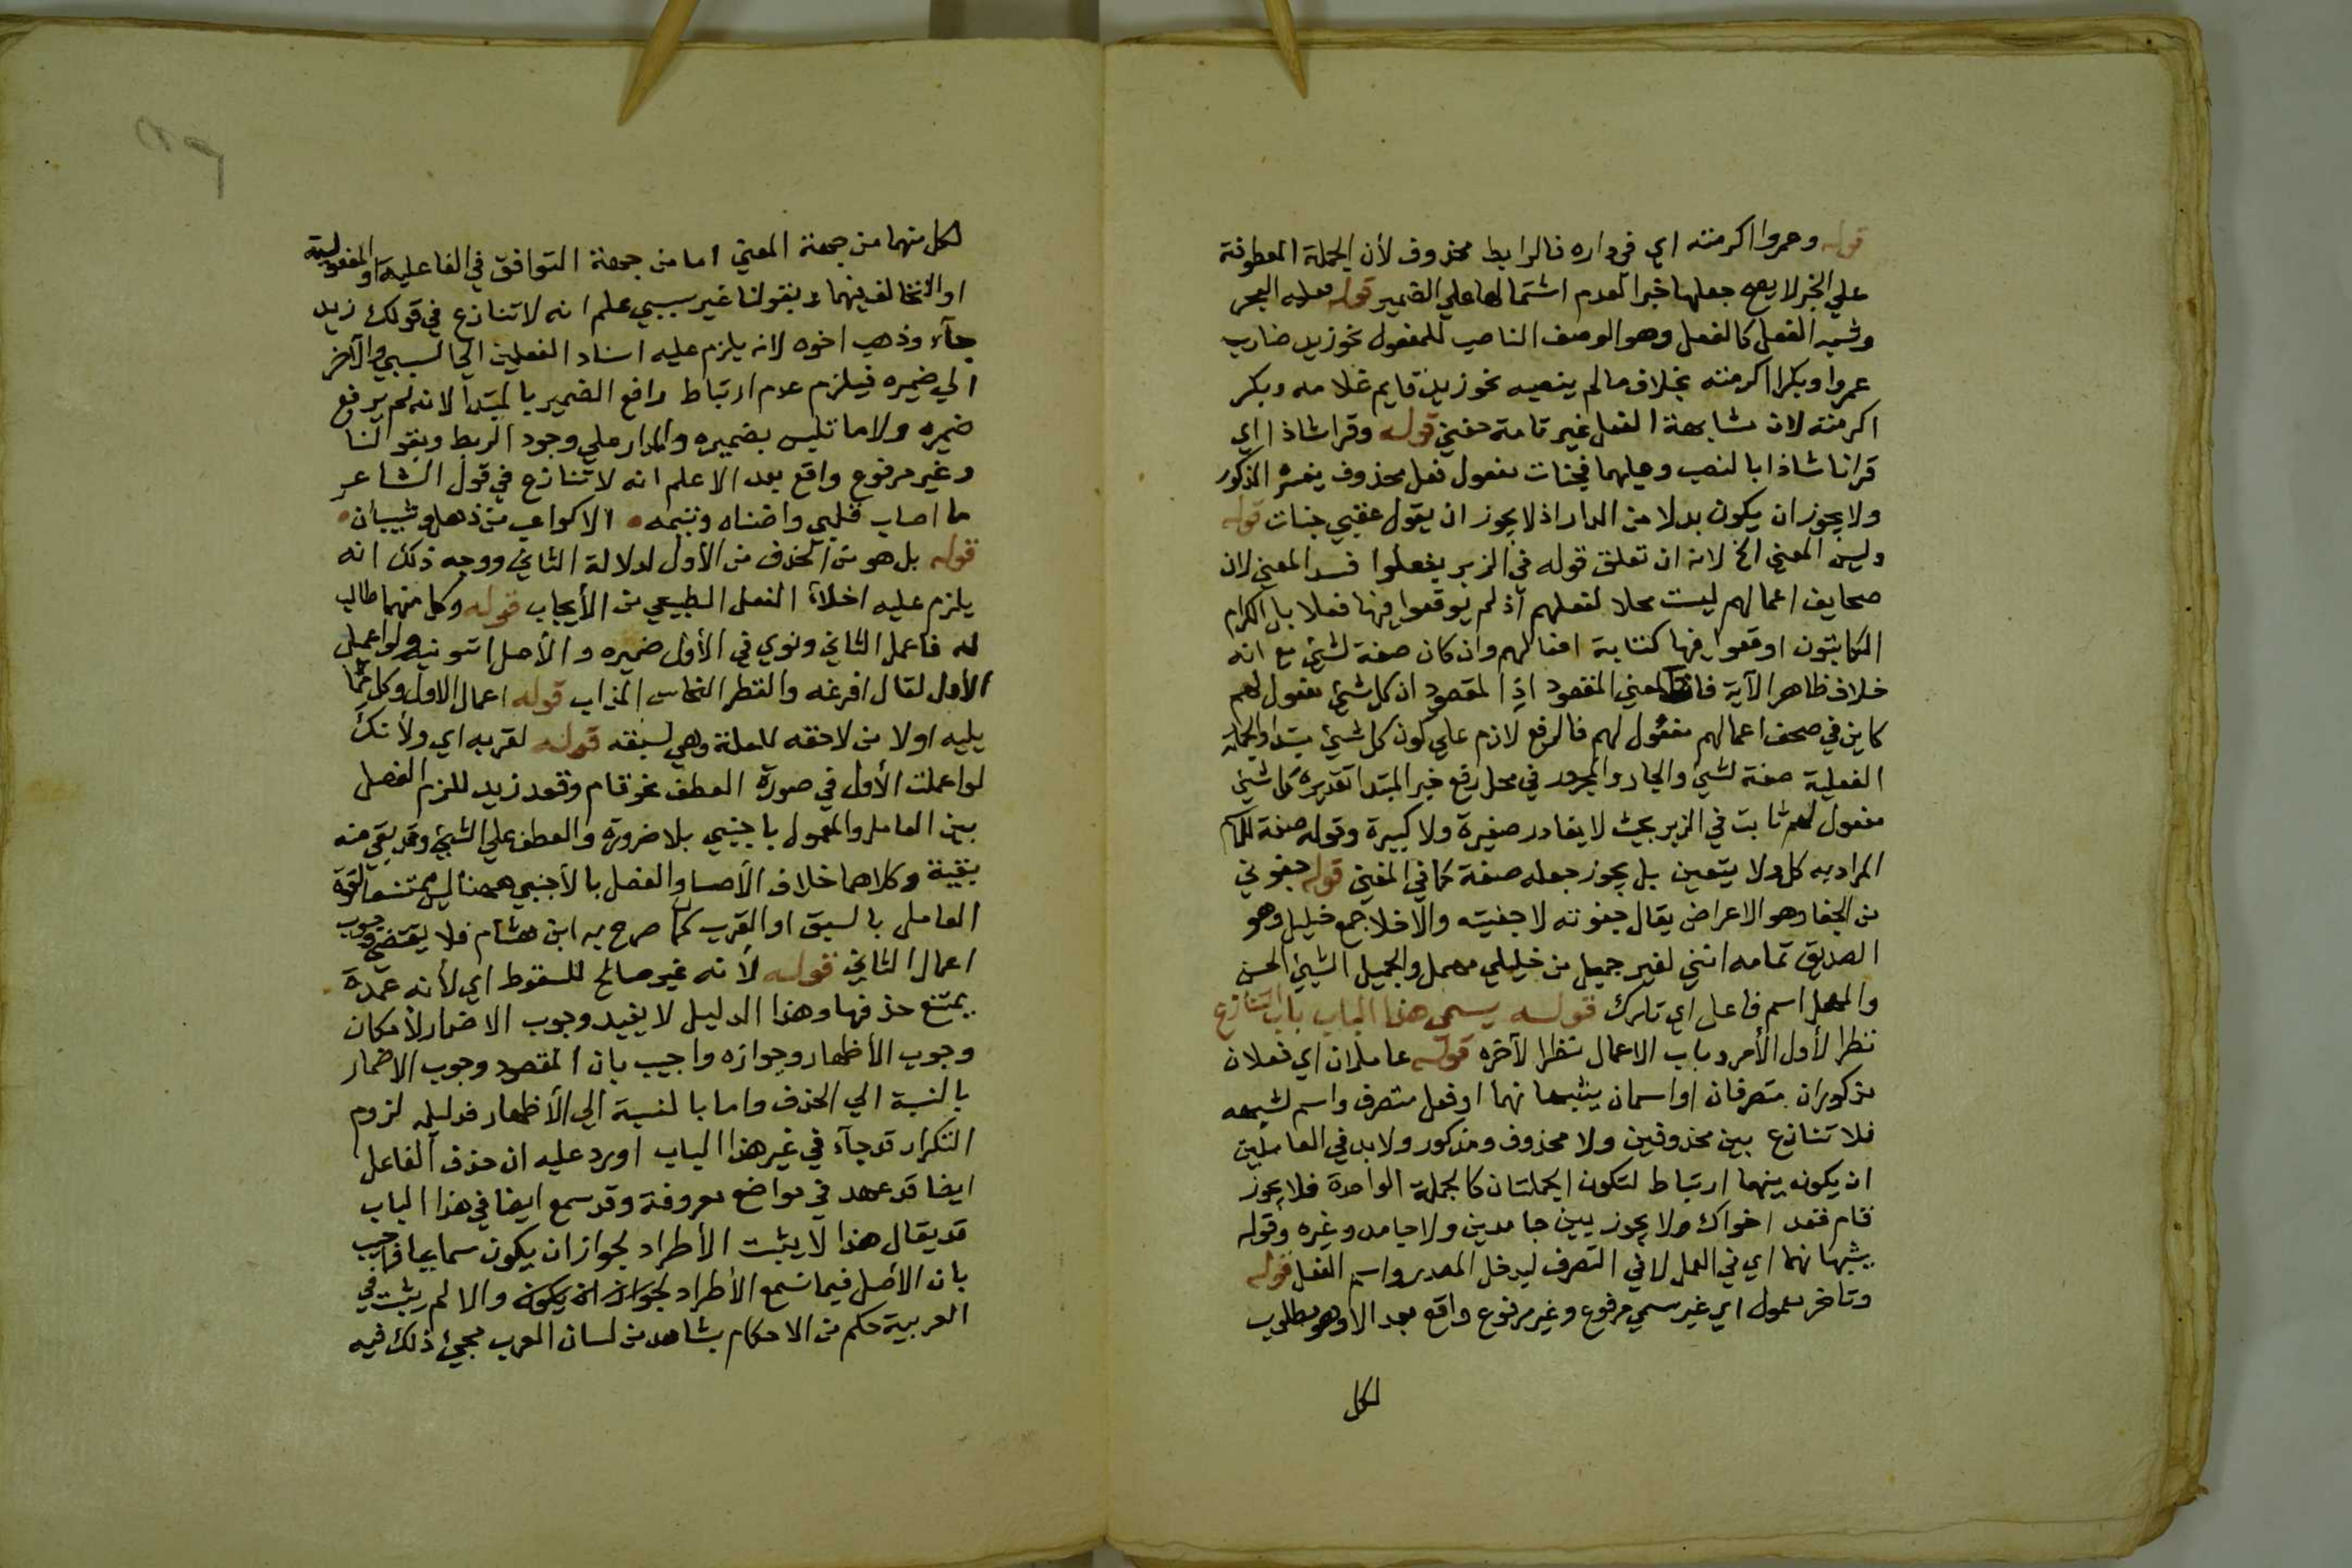 قوله وعمروا اكرمته اي في داره فالرابط محذوف لأن الجملة المعطوفة
علي الخبر لا يصح جعلها خبرا لعدم اشتمالها علي الضمير قوله
وشبه الفعل كالفعل وهو الوصف الناصب للمفعول نحو زيد ضارب
عمروا وبكرا اكرمته بخلاف ما لم ينصبه نحو زيد قايم غلامه وبكر
اكرمته لان مشابهة الفعل غير تامة قوله وقرا شاذا اي
قرانا شاذا بالنصب وعليهما فجنات مفعول فعل محذوف يفسره المذكور
ولا يجوز ان يكون بدلا من الدار اذ لا يجوز ان يقول عقبي جنات قوله
وليس المعني الخ لانه ان تعلق قوله في الزبر بفعلوا فسد المعني لان
صحايف اعمالهم ليست محلا لفعلهم اذ لم يوقعوا فيها فعلا بل الكرام
الكاتبون اوقعوا فيها كتابة افعالهم وان كان صفة لشيئ مع انه
خلاف ظاهر الآية فات المعني المقصود اذ المقصود ان كل شيئ مفعول لهم
كاين في صحف اعمالهم مفعول لهم فالرفع لازم علي كون كل شيئ مبتدا والجملة
الفعلية صفة لشيئ والجار والمجرور في محل رفع خبر المبتدا تقديره كل شيئ
مفعول لهم ثابت في الزبر بحيث لا يغادر صغيرة ولا كبيرة وقوله صفة
المراد به كل ولا يتعين بل يجوز جعله صفة كما في المغني قوله جفوني
من الجفا وهو الاعراض يقال جفوته لا جفيته والأخلا جمع خليل وهو
الصديق تمامه انني لغير جميل من خليلي مهمل والجميل الشيئ الحسن
والمهمل اسم فاعل اي تارك قوله يسمي هذا الباب باب التنازع
نظرا لأول الأمر وباب الاعمال نظرا لآخره قوله عاملان اي فعلان
مذكوران متصرفان او اسمان يشبهانهما او فعل متصرف واسم يشبهه
فلا تنازع بين محذوفين ولا محذوف ومذكور ولا بد في العاملين
ان يكون بينهما ارتباط لتكون الجملتان كالجملة الواحدة فلا يجوز
قام قعد اخواك ولا يجوز بين جامدين ولا جامد وغيره وقوله
يشبهانهما اي في العمل لا في التصرف ليدخل المصدر واسم الفعل قوله
وتاخر معمول اي غير سببي مرفوع وغير مرفوع واقع بعد الا وهو مطلوب
لكل
لكل منهما من جهة المعني اما من جهة التوافق في الفاعلية او المفعولية
او التخالف فيهما وبقولنا غير سببي علم انه لا تنازع في قولك زيد
جآء وذهب اخوه لانه يلزم عليه اسناد الفعلين الي السببي والآخر
الي ضميره فيلزم عدم ارتباط رافع الضمير بالمبتدا لانه لم يرفع
ضميره ولا ما تلبس بضميره والمدار علي وجود الربط وبقولنا
وغير مرفوع واقع بعد الا علم انه لا تنازع في قول الشاعر
ما اصاب قلبي واضناه وتيمه الا كواعب من ذهل وشيبان
قوله بل هو من الحذف من الأول لدلالة الثاني ووجه ذلك انه
يلزم عليه اخلاء الفعل من الأيجاب قوله وكل منهما طالب
له فاعمل الثاني ونوي في الأول ضميره والأصل اتونيه ولو اعمل
الأول لقال افرغه والقطر النحاس المذاب قوله اعمال الاول وكل ما
يليه اولا من لاحقه للعلة وهي لسبقه قوله لقربه اي ولأنك
لو اعملت الأول في صورة العطف نحو قام وقعد زيد للزم الفصل
بين العامل والمعمول باجنبي بلا ضرورة والعطف علي الشيئ وقد بقي منه
بقية وكلاهما خلاف الأصل والفصل بالأجنبي ههنا ليس ممتنعا لقوة
العامل بالسبق او القرب كما صرح به ابن هشام فلا يقتضي وجوب
اعمال الثاني قوله لأنه غير صالح للسقوط اي لأنه عمدة
يمتنع حذفها وهذا الدليل لا يفيد وجوب الاضمار لأمكان
وجوب الأظهار وجوازه واجيب بان المقصود وجوب الاضمار
بالنسبة الي الحذف واما بالنسبة الي الأظهار فدليله لزوم
التكرار قد جآء في غير هذا الباب اورد عليه ان حذف الفاعل
ايضا قد عهد في مواضع معروفة وقد سمع ايضا في هذا الباب
قد يقال هذا لا يثبت الأطراد لجواز ان يكون سماعيا فاجيب
بان الأصل فيما سمع الأطراد لجواز ان يكون والا لم يثبت في
العربية حكم من الاحكام بشاهد من لسان العرب مجيئ ذلك فيه